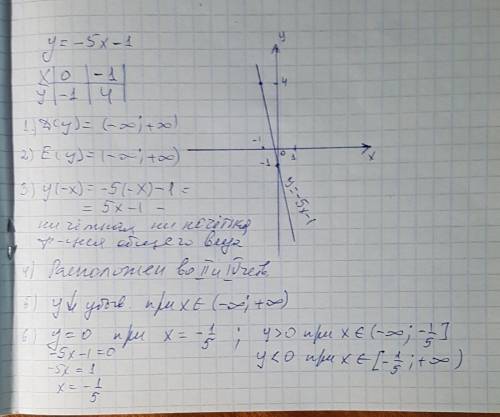 y = -5x - 1
x | 0 | -1
y | -1 | 4
1) D(y) = (-∞; +∞)
2) E(y) = (-∞; +∞)
3) y(-x) = -5(-x) - 1 =
= 5x - 1 -
ни чётная ни нечётная
ф-ция общего вида
4) Расположен во II и IV четв.
5) y ↓ убыв. при x ∈ (-∞; +∞)
6) y = 0 при x = -1/5 ; y > 0 при x ∈ (-∞; -1/5]
-5x - 1 = 0 y < 0 при x ∈ [-1/5; +∞)
-5x = 1
x = -1/5
y
4
-1 0 1 x
-1
y = -5x - 1